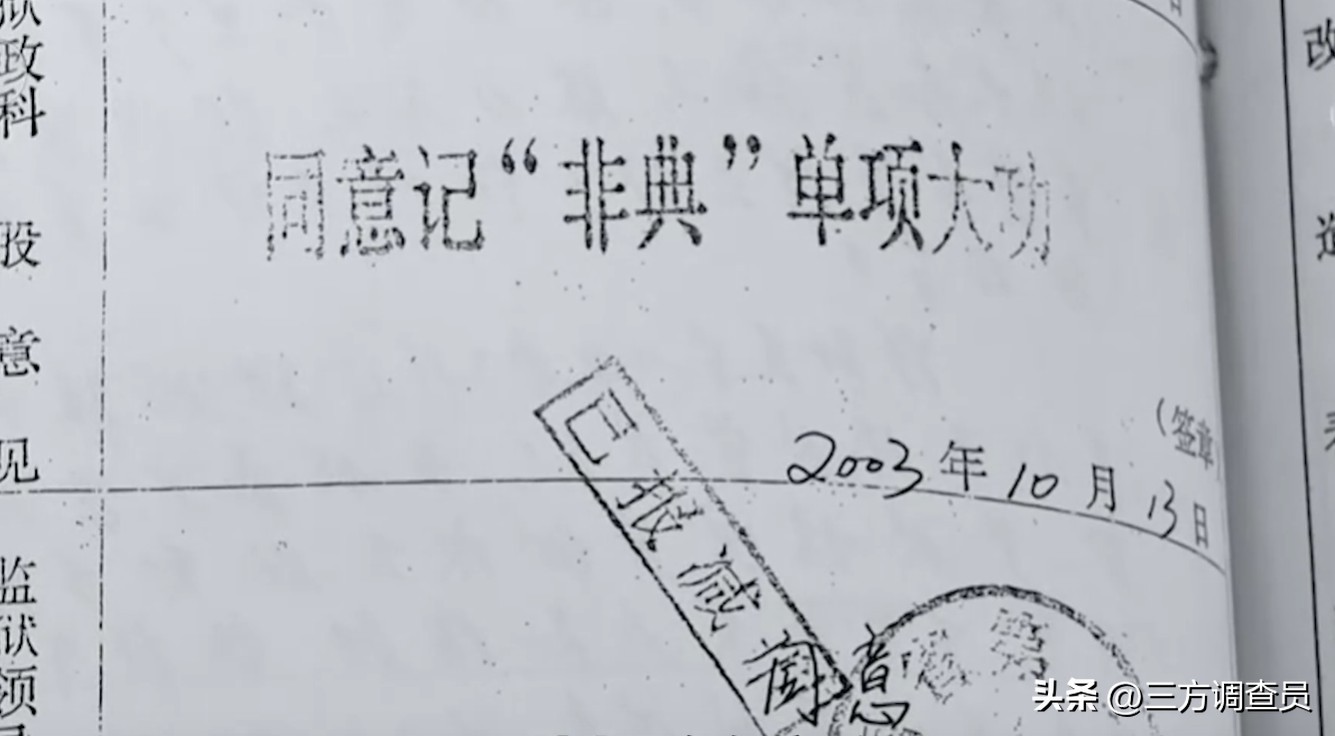 狱政科
股意见
同意记“非典”单项大功
(签章)
2003年10月13日
已报减
同意
监狱领
改
头条 @三方调查员